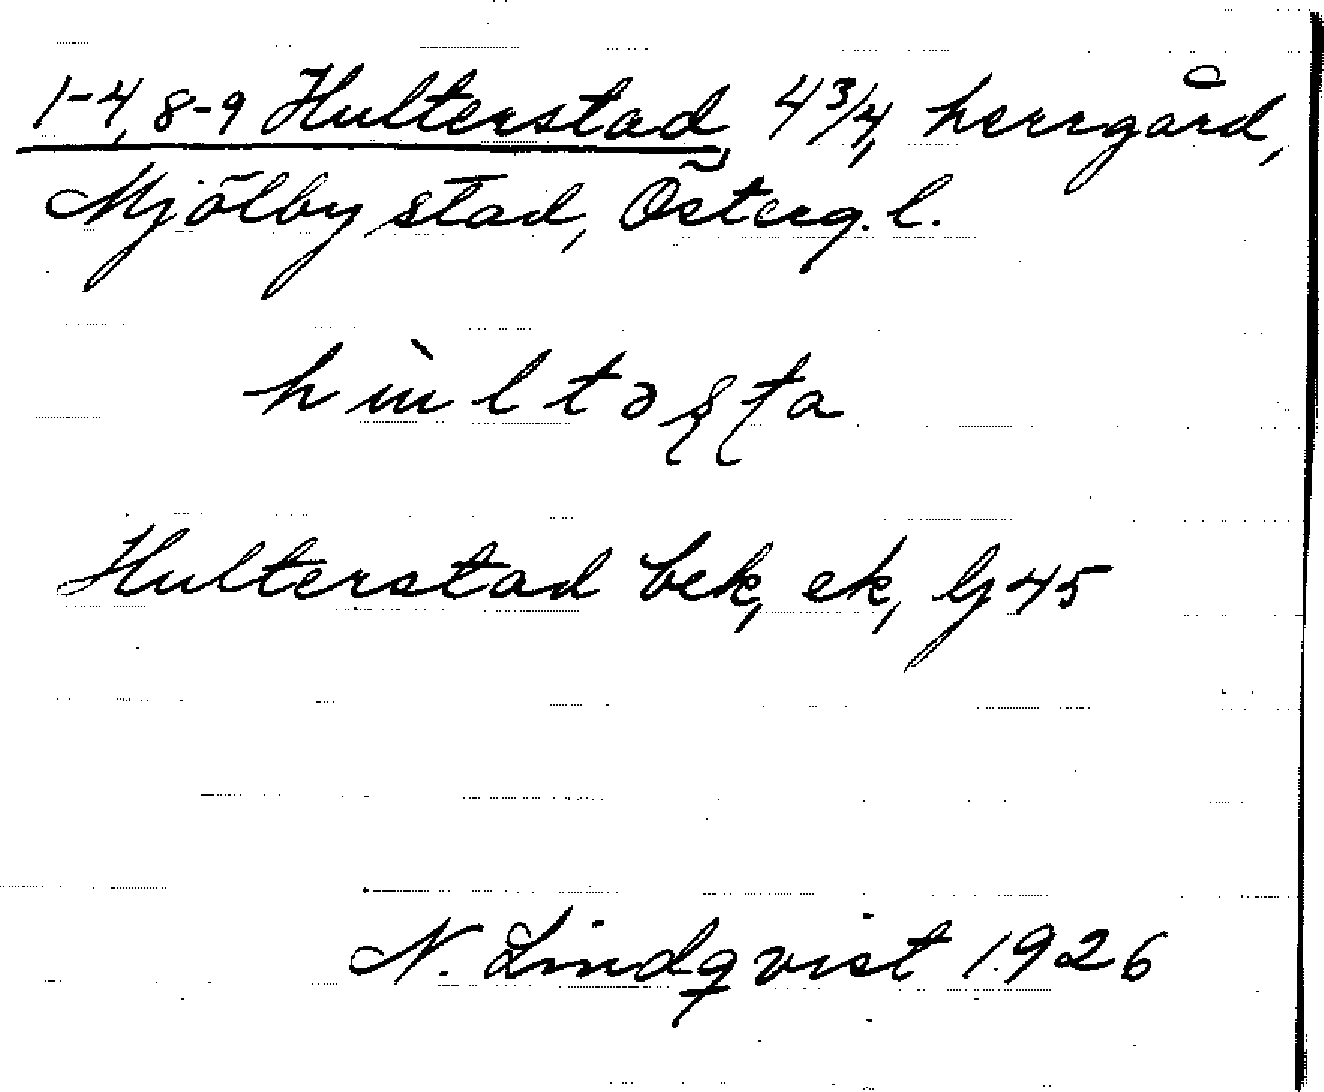 1-4, 8-9 Hulterstad, 4 3/4, herrgård,
Mjölby stad, Österg. l.
hùltəʂʈa
Hulterstad bek, ek, Gj 45
N. Lindqvist 1926